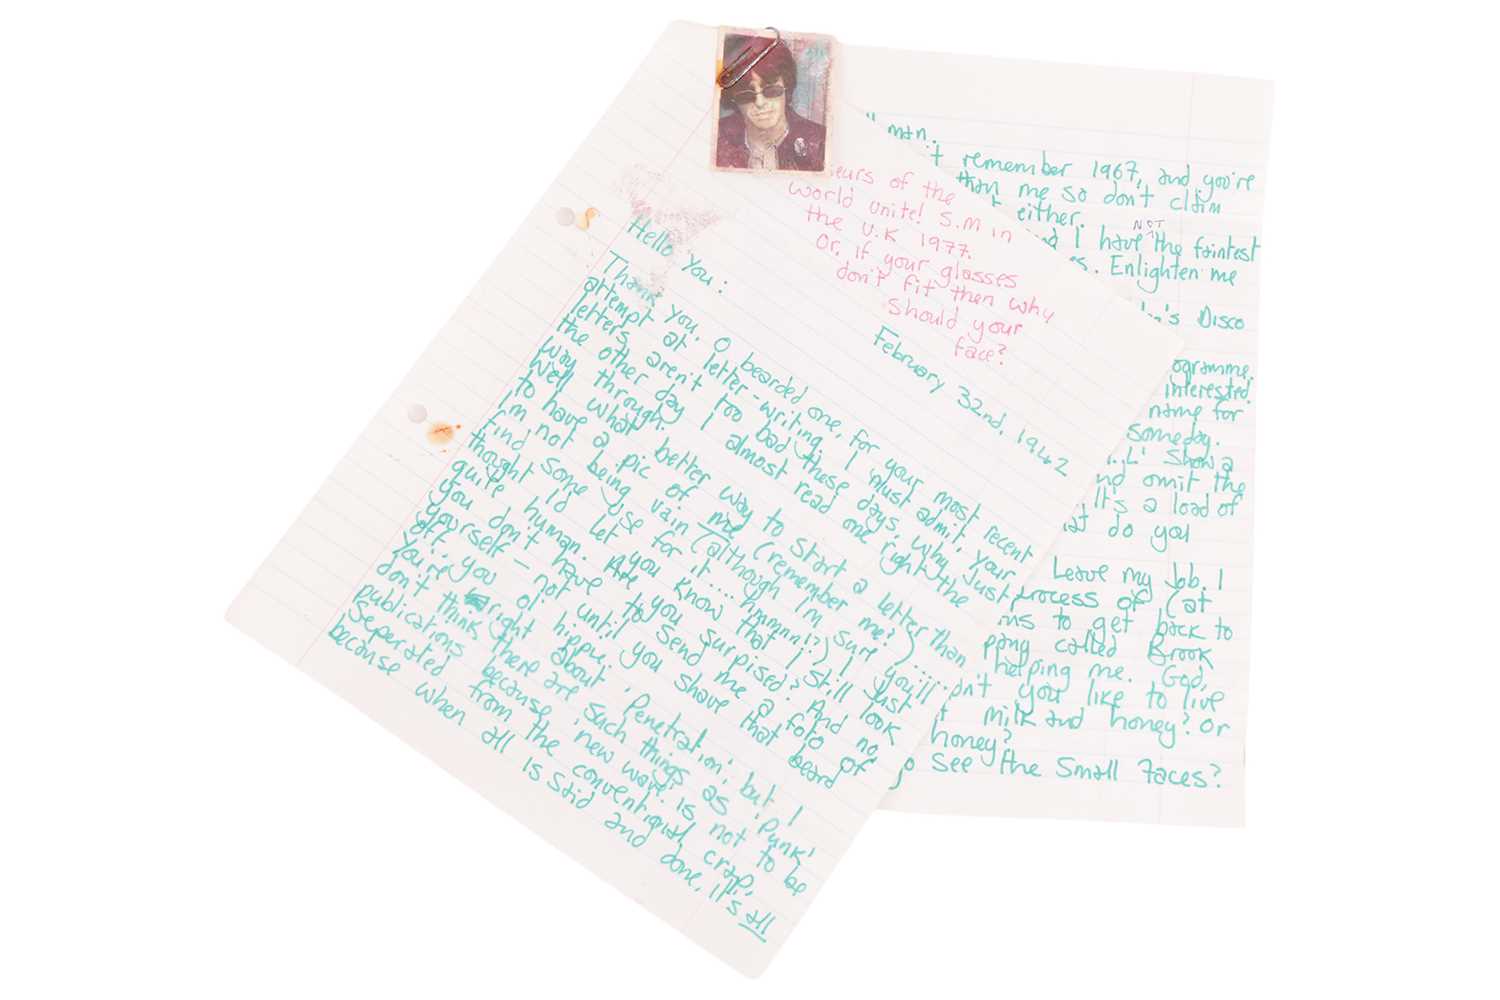 eurs of the
world unite! S.M in
the U.K 1977.
Or, if your glasses
don't fit then why
Should your
face?
February 32nd, 1942
Hello You:
Thank you, O bearded one, for your most recent
attempt at letter-writing. I must admit, your
letters aren't too bad these days, why, just
the other day I almost read one right the
way through.
Well what better way to start a letter than
to have a pic of me (remember me?).....
I'm not being vain (although I'm sure you'll
find some use for it.... hmmnn!?) I just
thought I'd let you know that I still look
quite human. Are you surpised? And no,
you don't have to send me a foto of
yourself - not until you shave that beard
off you ol' hippie.
You're right about 'Penetration', but I
don't think there are such things as 'Punk'
publications because 'new wave' is not to be
Seperated from the conventional crap,
because when all is said and done, it's all
man.
't remember 1967, and you're
than me so don't claim
either.
I have NOT the faintest
Enlighten me
's Disco
ogramme.
interested.
name for
someday.
Show a
nd omit the
It's a load of
at do you
Leave my job. I
process of (at
ns to get back to
pany called Brook
helping me. God,
n't you like to live
milk and honey? Or
honey?
o see the Small Faces?